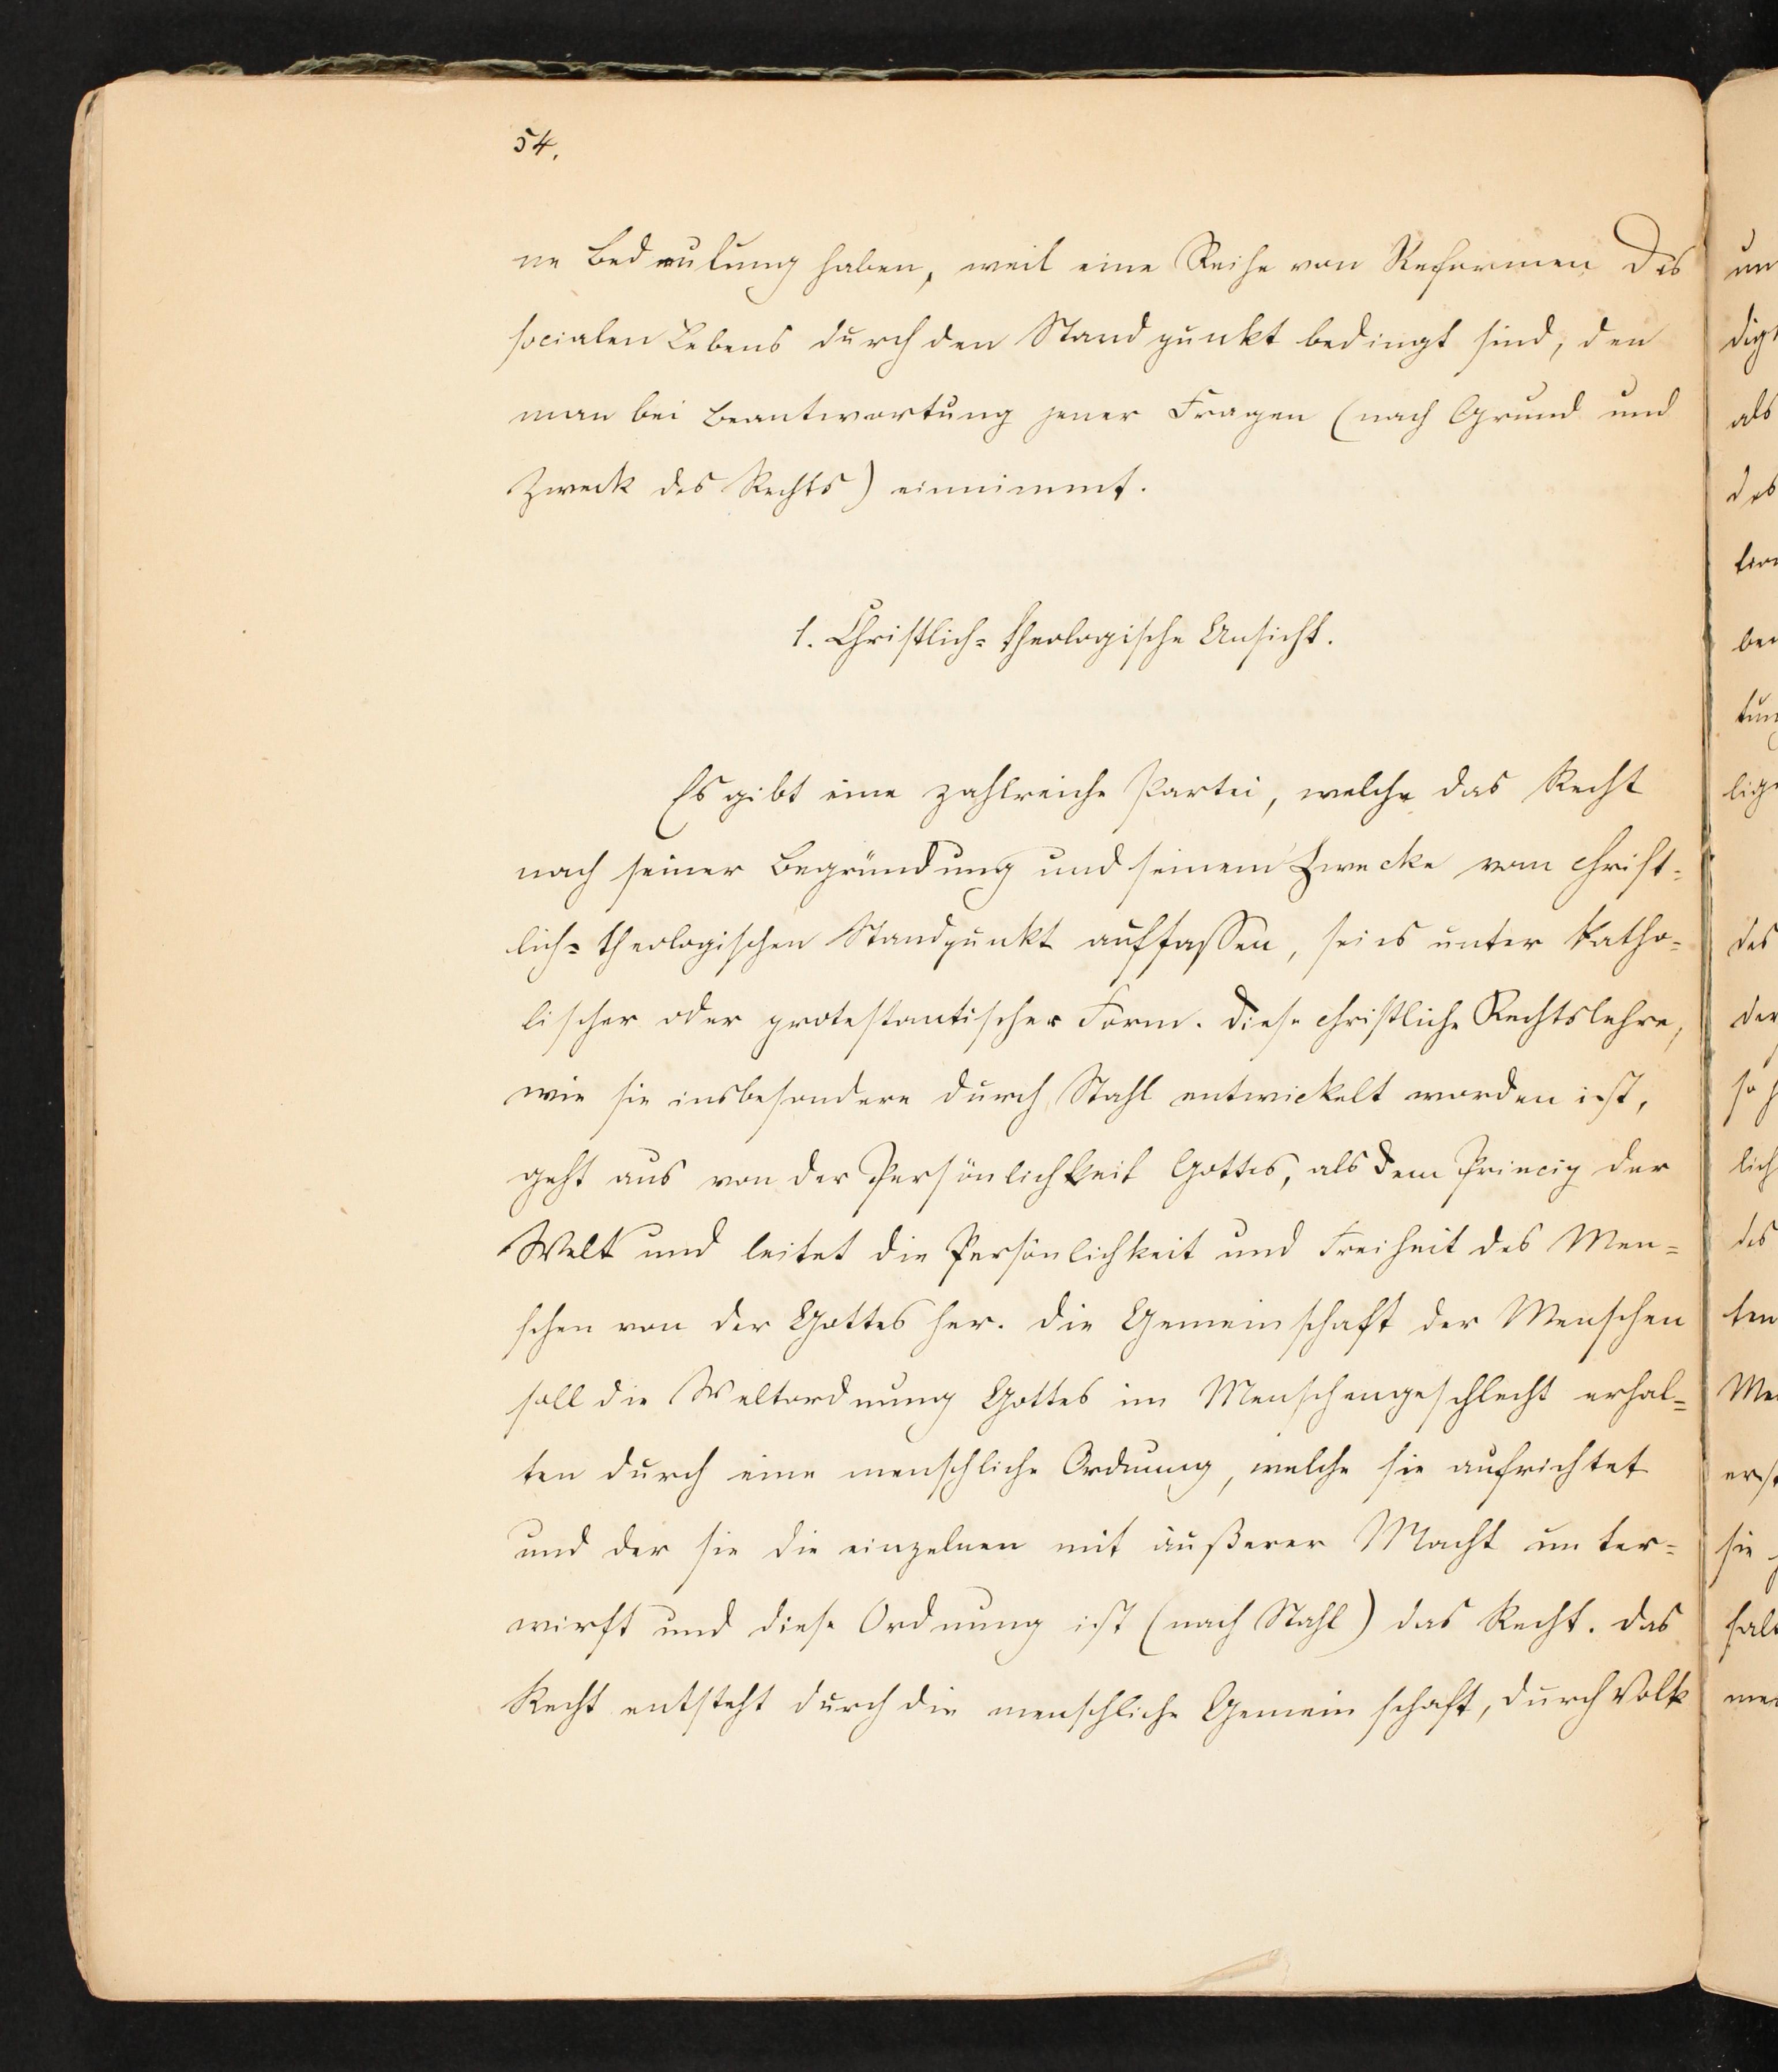 54.
ne Bedeutung haben, weil eine Reihe von Reformen des
socialen Lebens durch den Standpunkt bedingt sind, den
man bei Beantwortung jener Fragen (nach Grund und
Zweck des Rechts) einnimmt.
1. Christlich= theologische Ansicht.
Es gibt eine zahlreiche Partei, welche das Recht
nach seiner Begründung und seinem Zwecke vom christ=
lich= theologischen Standpunkt auffassen, sei es unter katho=
lischer oder protestantischer Form. Diese christliche Rechtslehre,
wie sie insbesondere durch Stahl entwickelt worden ist,
geht aus von der Persönlichkeit Gottes, als dem Princip der
Welt und leitet die Persönlichkeit und Freiheit des Men=
schen von der Gottes her. Die Gemeinschaft der Menschen
soll die Weltordnung Gottes im Menschengeschlecht erhal=
ten durch eine menschliche Ordnung, welche sie aufrichtet
und der sie die einzelnen mit äußerer Macht unter=
wirft und diese Ordnung ist (nach Stahl) das Recht. Das
Recht entsteht durch die menschliche Gemeinschaft, durch Volk